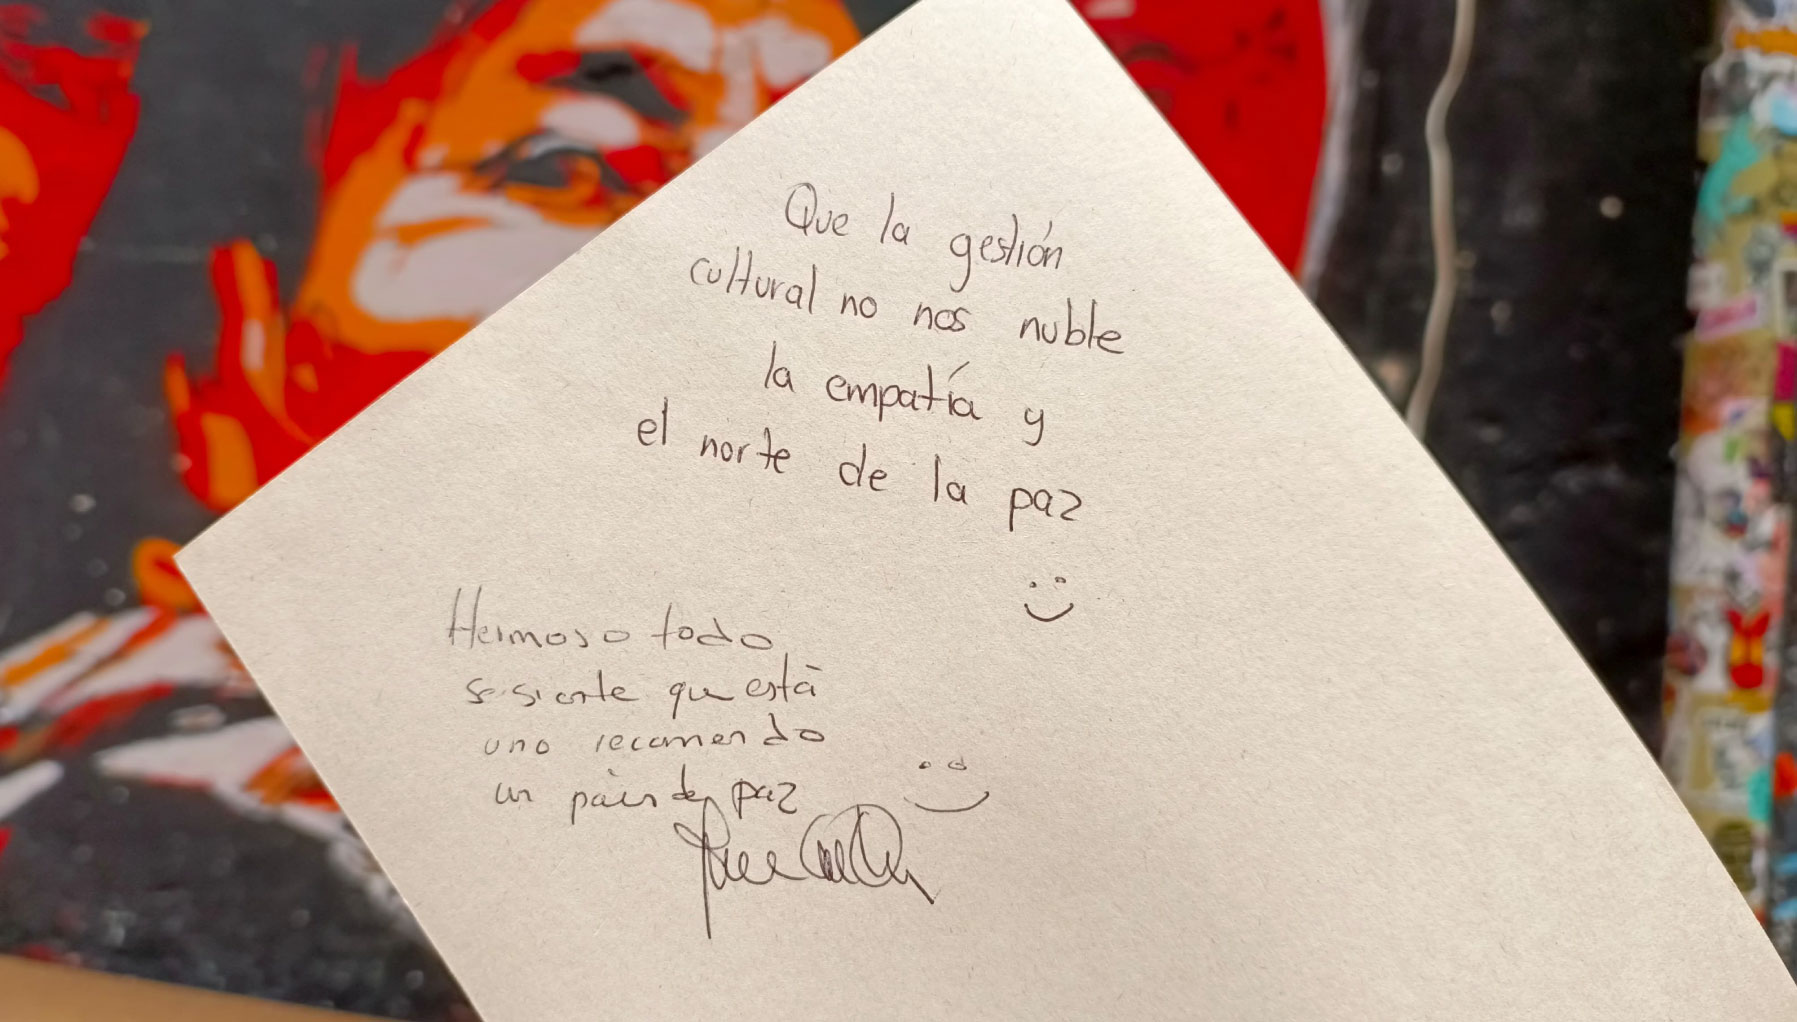 Que la gestión
cultural no nos nuble
la empatía y
el norte de la paz
Hermoso todo
se siente que está
uno recorriendo
un país de paz